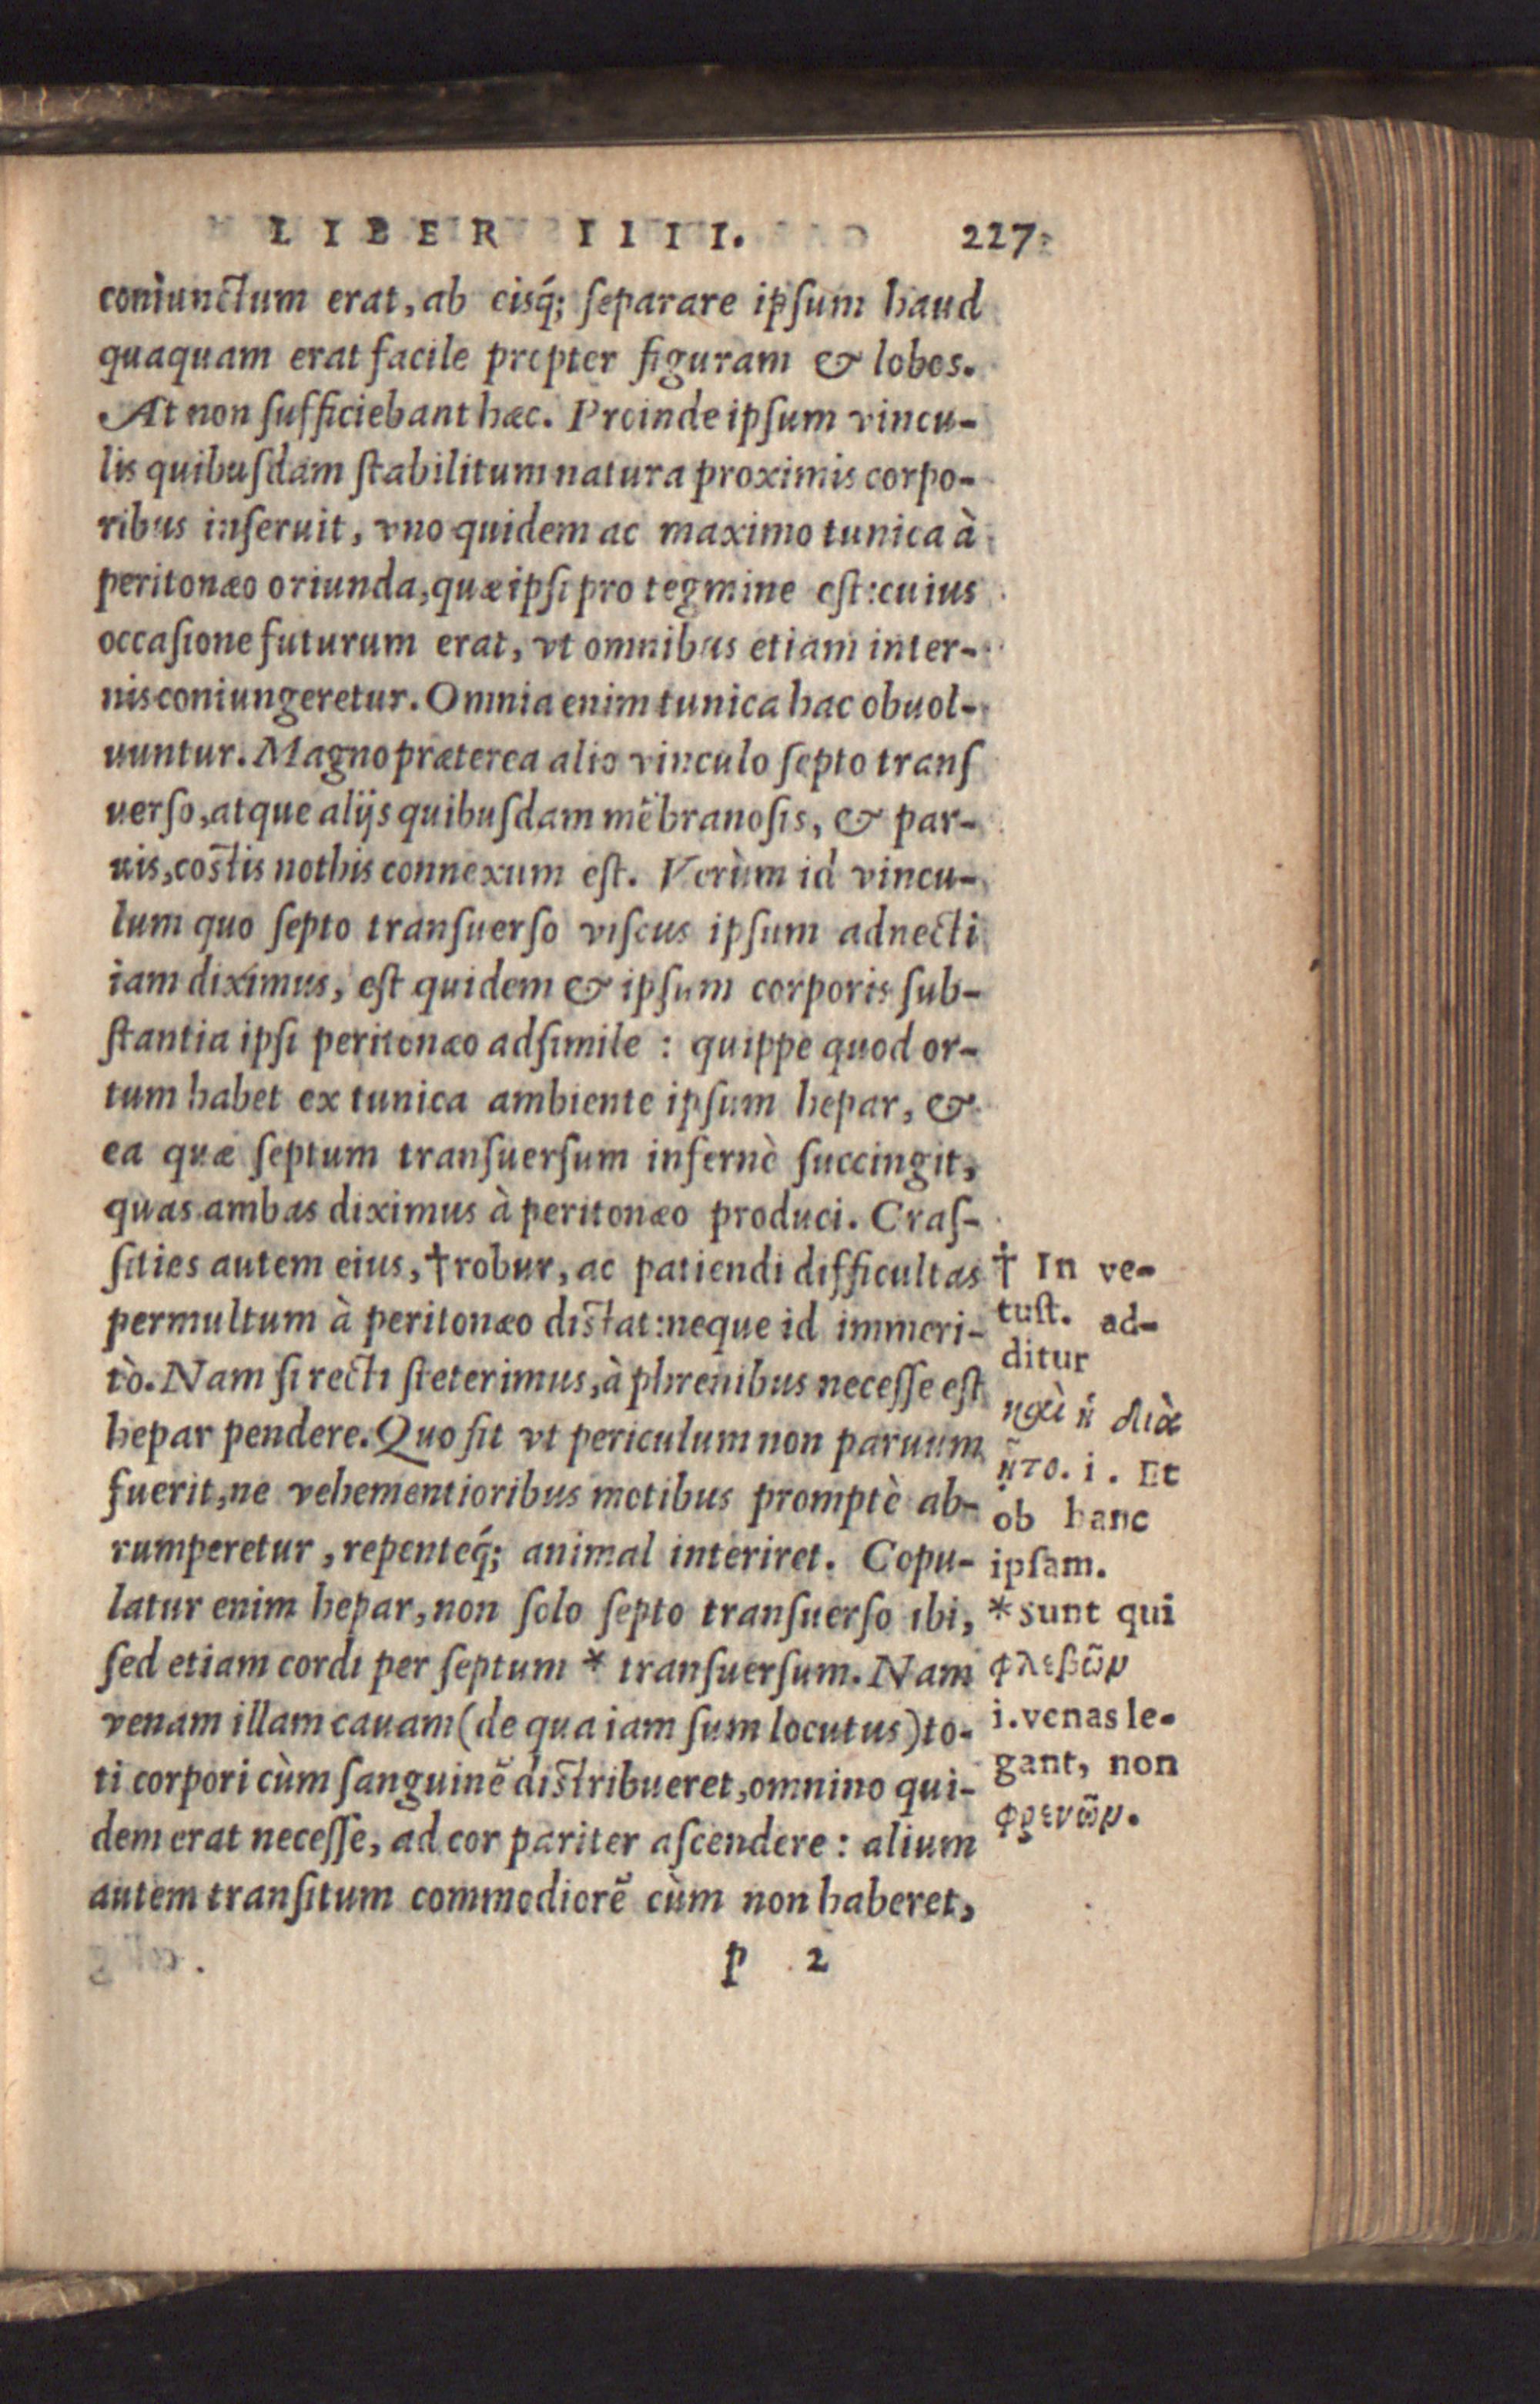 LIBER IIII. 227
coniunctum erat, ab eisq́; ſeparare ipſum haud
quaquam erat facile propter figuram & lobos.
At non ſufficiebant hæc. Proinde ipſum vincu-
lis quibuſdam ſtabilitum natura proximis corpo-
ribus inſeruit, vno quidem ac maximo tunica à
peritonæo oriunda, quæ ipſi pro tegmine eſt: cuius
occaſione futurum erat, vt omnibus etiam inter-
nis coniungeretur. Omnia enim tunica hac obuol-
uuntur. Magno præterea alio vinculo ſepto tranſ
uerſo, atque alijs quibuſdam mẽbranoſis, & par-
uis, coſtis nothis connexum eſt. Verùm id vincu-
lum quo ſepto tranſuerſo viſcus ipſum adnecti
iam diximus, eſt quidem & ipſum corporis ſub-
ſtantia ipſi peritonæo adſimile : quippe quod or-
tum habet ex tunica ambiente ipſum hepar, &
ea quæ ſeptum tranſuerſum infernè ſuccingit,
quas ambas diximus à peritonæo produci. Craſ-
ſities autem eius, †robur, ac patiendi difficultas
permultum à peritonæo diſtat: neque id immeri-
tò. Nam ſi recti ſteterimus, à phrenibus neceſſe eſt
hepar pendere. Quo fit vt periculum non paruum
fuerit, ne vehementioribus motibus promptè ab-
rumperetur, repenteq́; animal interiret. Copu-
latur enim hepar, non ſolo ſepto tranſuerſo ibi,
ſed etiam cordi per ſeptum * tranſuerſum. Nam
venam illam cauam (de qua iam ſum locutus) to-
ti corpori cùm ſanguinẽ diſtribueret, omnino qui-
dem erat neceſſe, ad cor pariter aſcendere : alium
autem tranſitum commodiorẽ cùm non haberet,
p 2
† In ve-
tuſt. ad-
ditur
i. Et
ob hanc
ipſam.
*Sunt qui
φλεβῶν
i. venas le-
gant, non
φρενῶν.